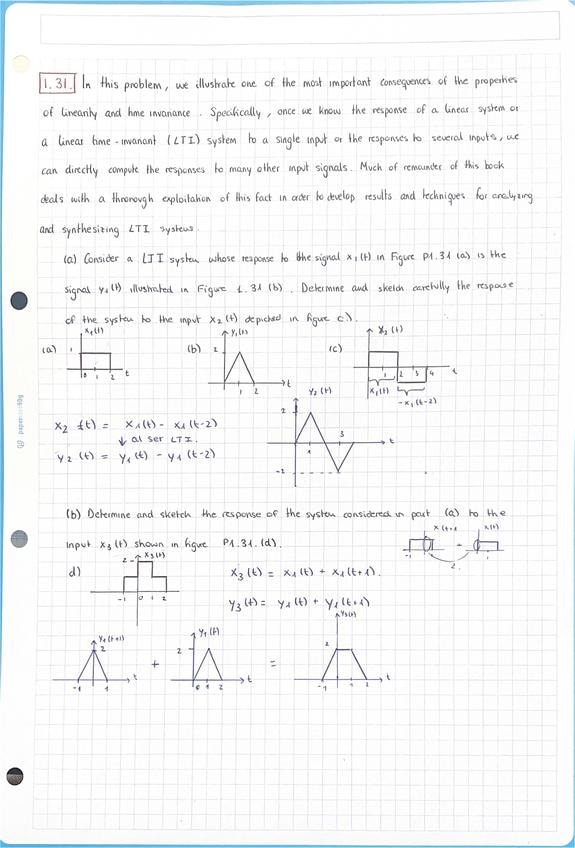 1.31. In this problem, we illustrate one of the most important consequences of the properties
of linearity and time invariance. Specifically, once we know the response of a linear system or
a linear time-invariant (LTI) system to a single input or the responses to several inputs, we
can directly compute the responses to many other input signals. Much of remainder of this book
deals with a thorough exploitation of this fact in order to develop results and techniques for analyzing
and synthesizing LTI systems.
(a) Consider a LTI system whose response to the signal x1(t) in Figure P1.31 (a) is the
signal y1(t) illustrated in Figure 1.31 (b). Determine and sketch carefully the response
of the system to the input x2(t) depicted in figure c).
(a) x1(t) 1 0 1 2 t
(b) y1(t) 2 1 2 t
(c) x2(t) 1 2 3 4 t
x1(t) -x1(t-2)
x2(t) = x1(t) - x1(t-2)
↓ al ser LTI.
y2(t) = y1(t) - y1(t-2)
y2(t) 2 1 3 -2 t
(b) Determine and sketch the response of the system considered in part (a) to the
input x3(t) shown in figure P1.31.(d).
x(t+1 x(t)
2.
d) x3(t) 2 -1 0 1 2
x3(t) = x1(t) + x1(t+1).
y3(t) = y1(t) + y1(t+1)
y1(t+1) 2 -1 1 t
+
y1(t) 2 0 1 2 t
=
y3(t) 2 -1 1 2 t